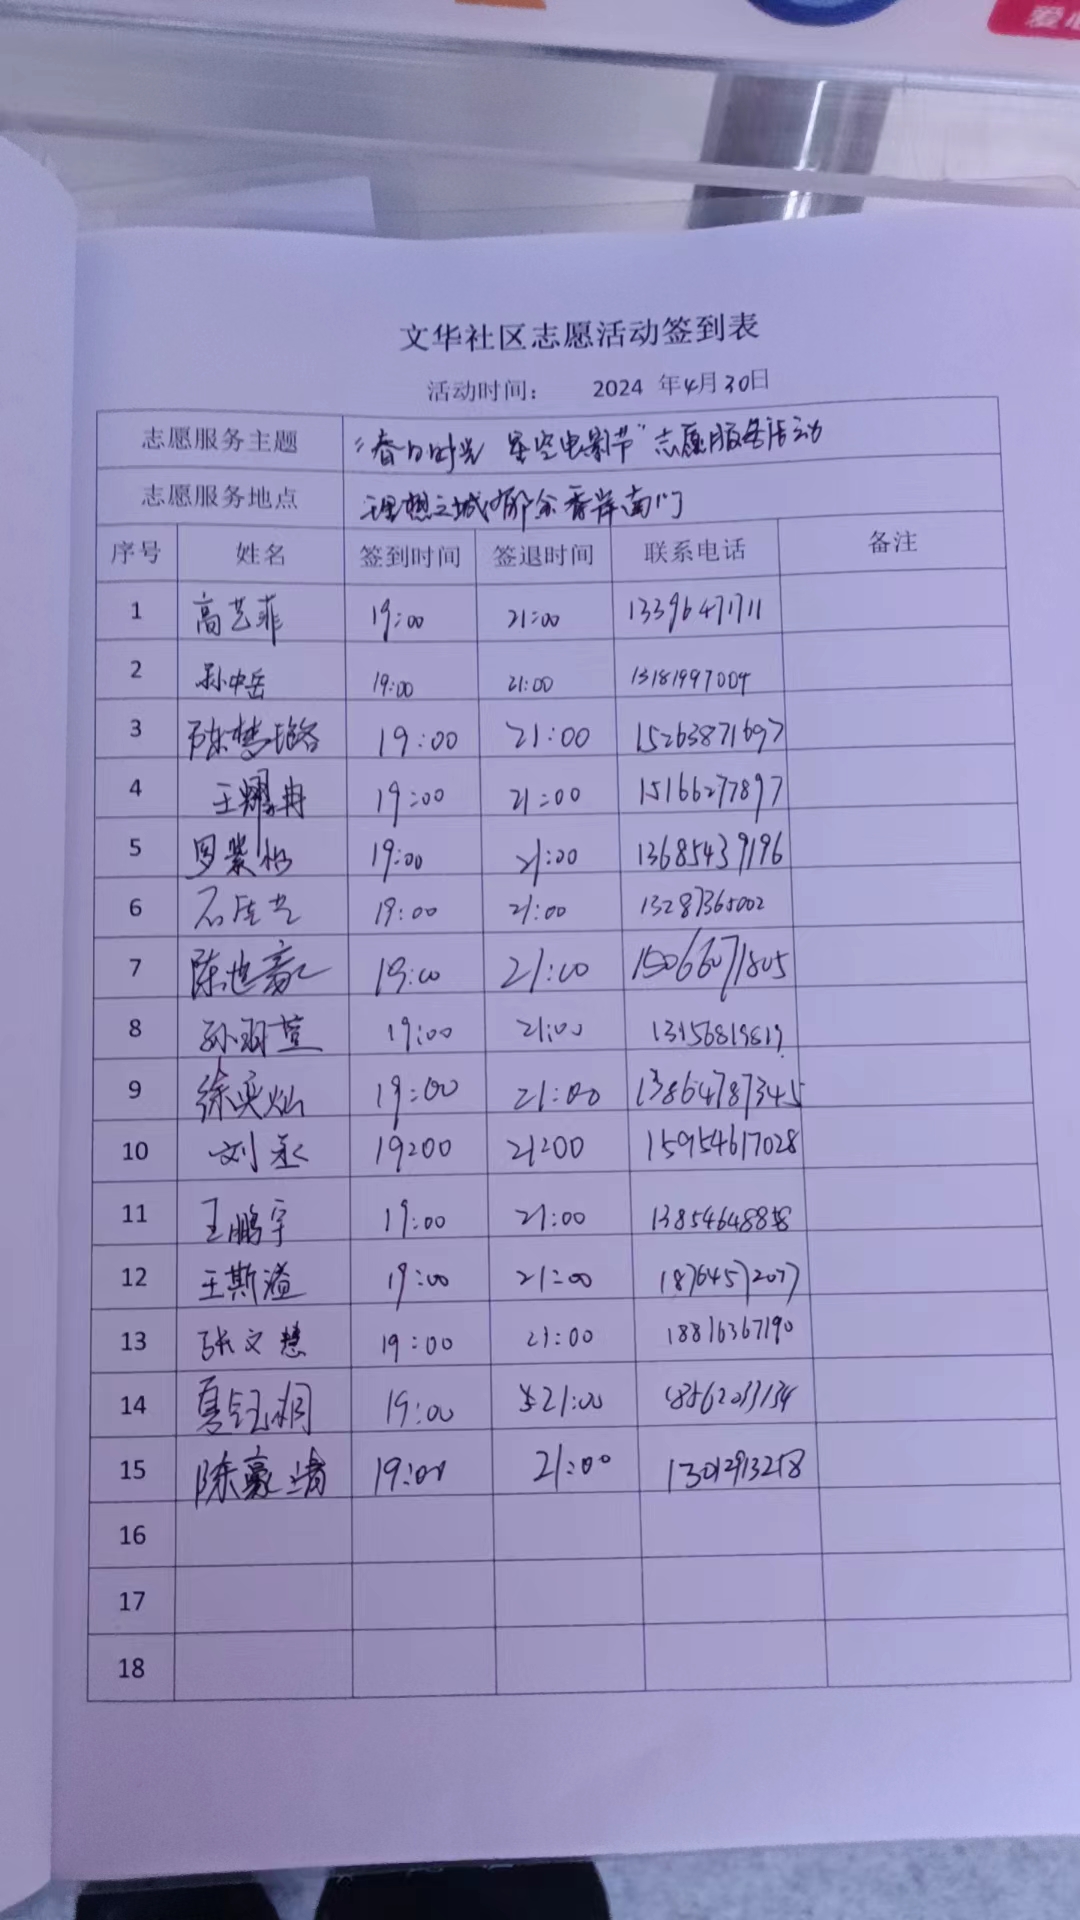 爱心
文华社区志愿活动签到表
活动时间： 2024 年4月30日
志愿服务主题 “春日时光 星空电影节”志愿服务活动
志愿服务地点 理想之城郁金香岸南门
序号 姓名 签到时间 签退时间 联系电话 备注
1 高艺菲 19:00 21:00 13396471711
2 孙中岳 19:00 21:00 13181997009
3 陈梦璐 19:00 21:00 15263871697
4 王耀冉 19:00 21:00 15166277897
5 罗紫怡 19:00 21:00 13685439196
6 石佳艺 19:00 21:00 13287365002
7 陈世豪 19:00 21:00 15066071805
8 孙羽萱 19:00 21:00
9 徐奕灿 19:00 21:00 13864787345
10 刘丞 19:00 21:00 15954617028
11 王鹏宇 19:00 21:00 13854648858
12 王斯滢 19:00 21:00 18764572077
13 张文慧 19:00 21:00 18816367190
14 夏钰润 19:00 21:00
15 陈豪靖 19:00 21:00
16
17
18